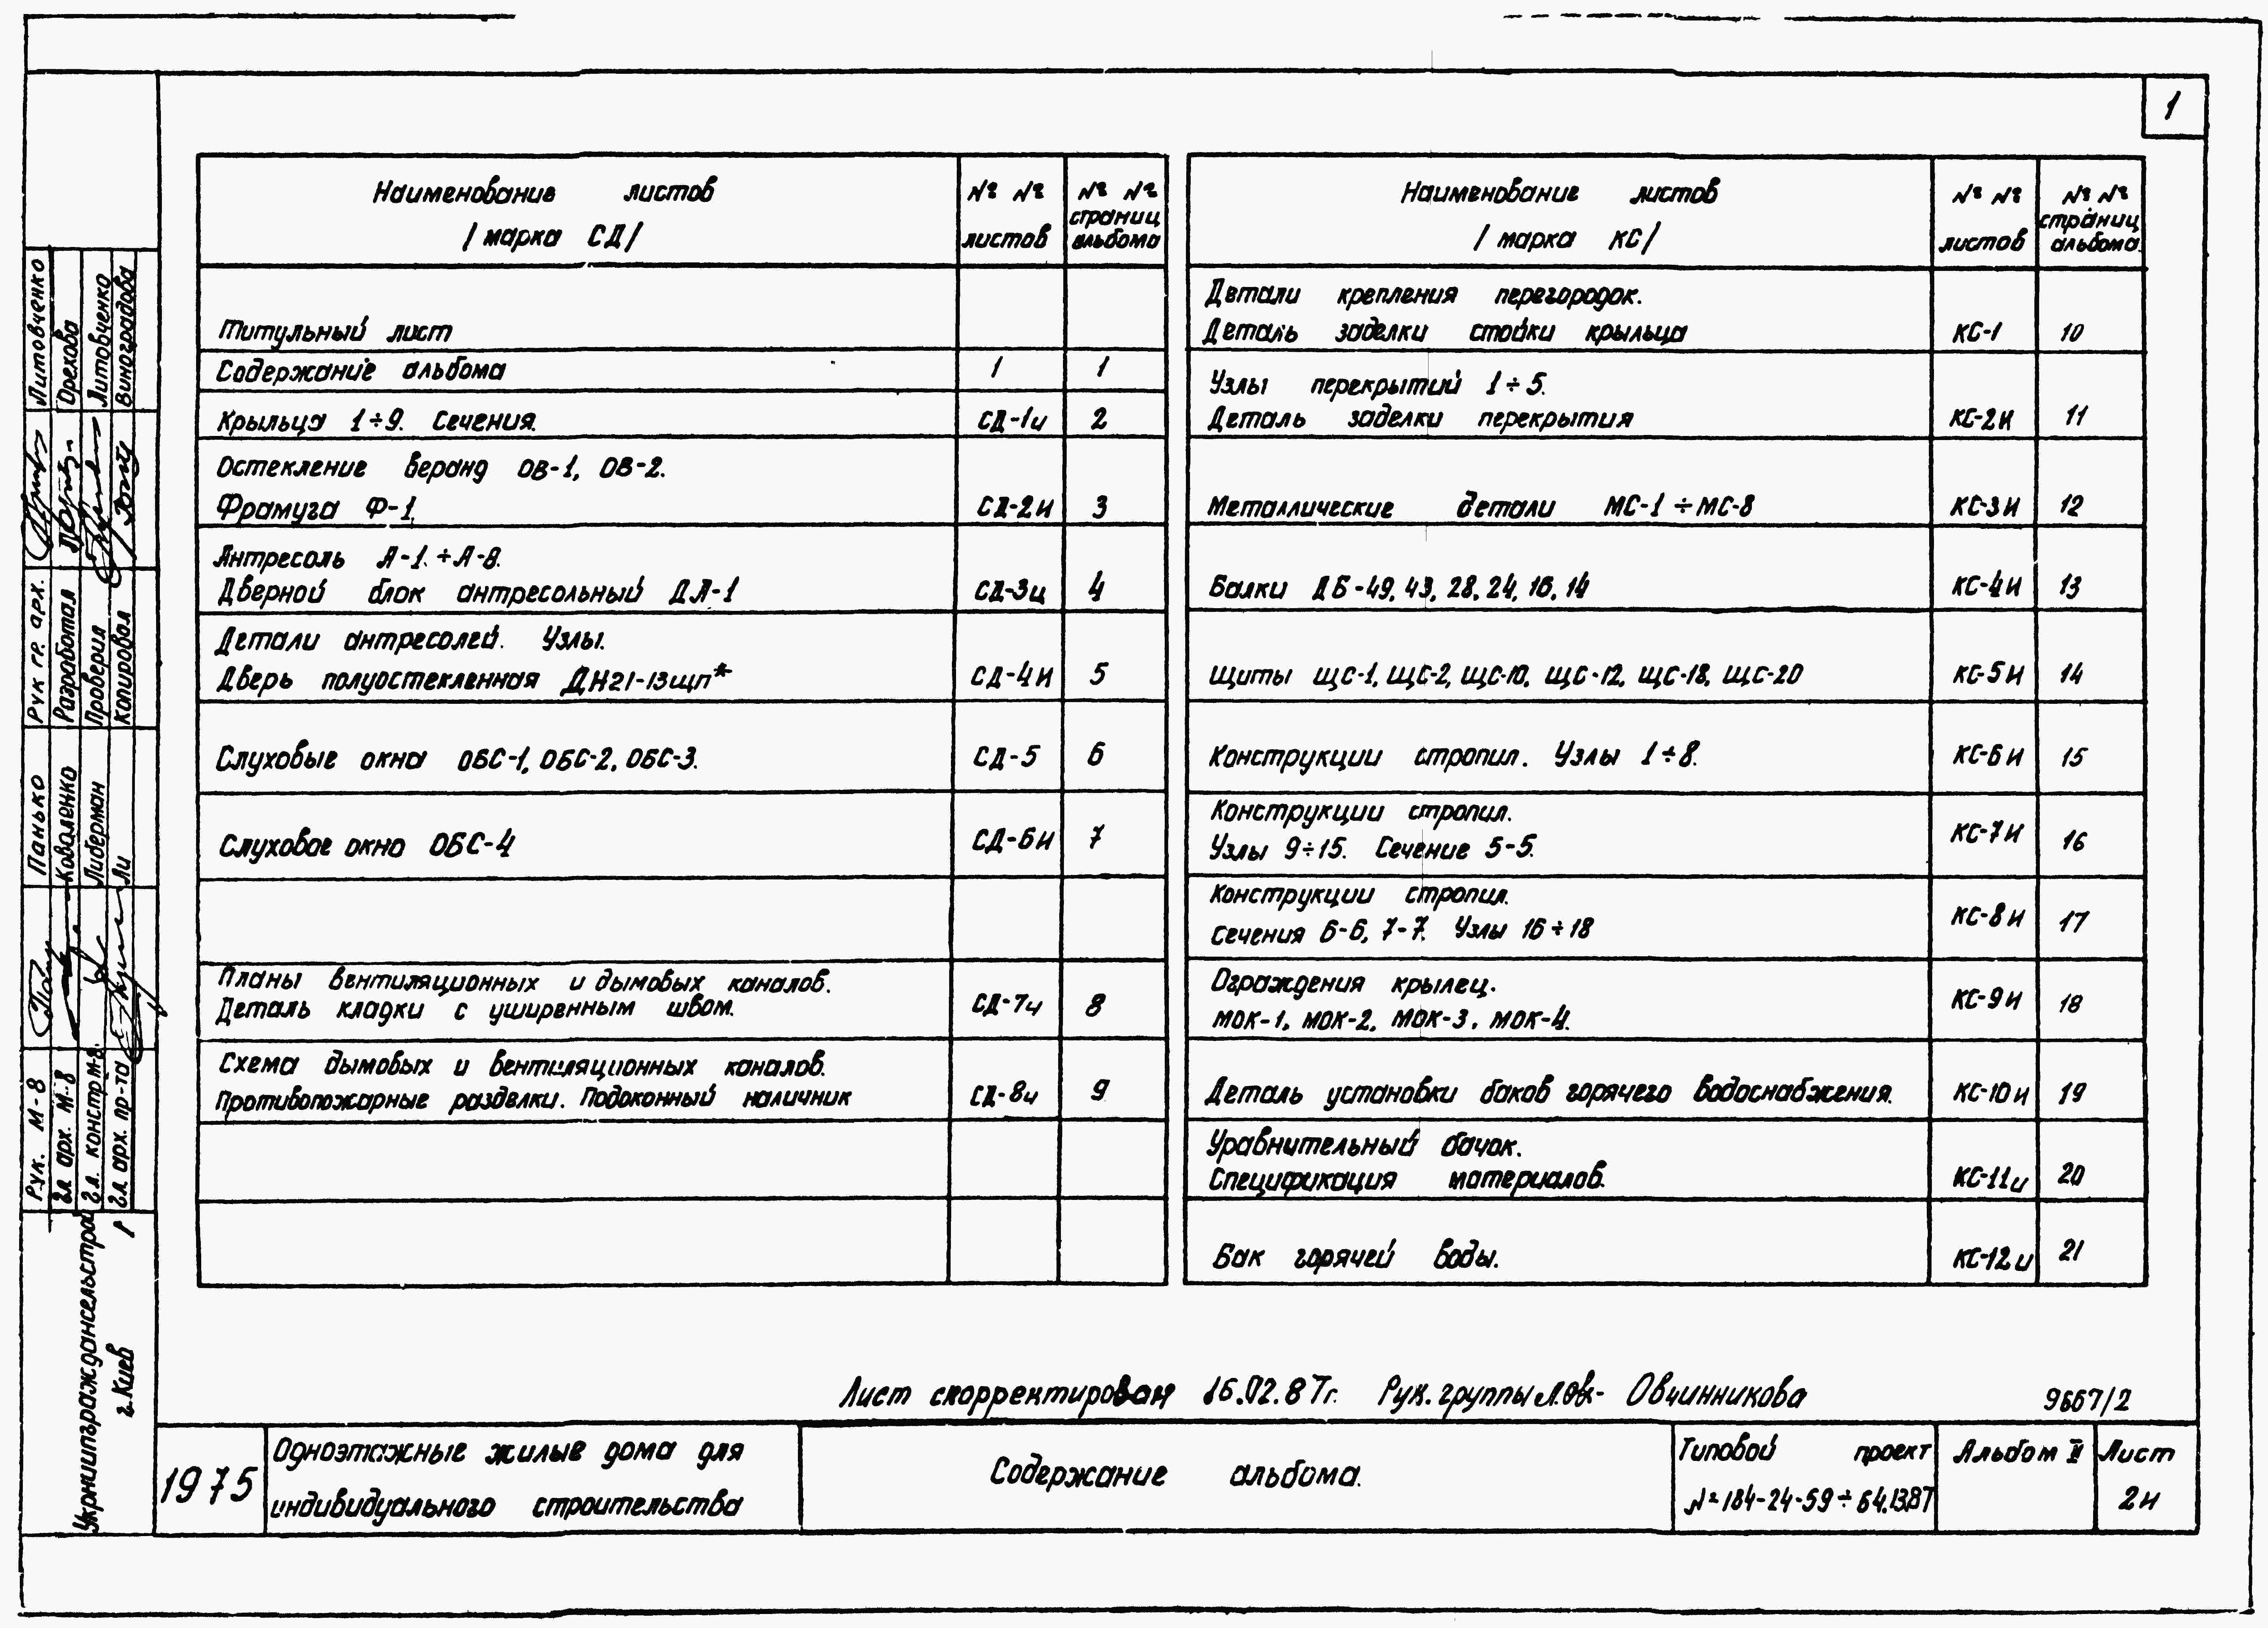 1
Наименование листов
/ марка СД /
№ № листов
№ № страниц альбома
Титульный лист
Содержание альбома 1 1
Крыльца 1÷9. Сечения. СД-1и 2
Остекление веранд ОВ-1, ОВ-2.
Фрамуга Ф-1. СД-2и 3
Антресоль А-1.÷А-8.
Дверной блок антресольный ДА-1 СД-3и 4
Детали антресолей. Узлы.
Дверь полуостекленная ДН21-13щп* СД-4и 5
Слуховые окна ОБС-1, ОБС-2, ОБС-3. СД-5 6
Слуховое окно ОБС-4 СД-6и 7
Планы вентиляционных и дымовых каналов.
Деталь кладки с уширенным швом. СД-7и 8
Схема дымовых и вентиляционных каналов.
Противопожарные разделки. Подоконный наличник СД-8и 9
Наименование листов
/ марка КС /
№ № листов
№ № страниц альбома
Детали крепления перегородок.
Деталь заделки стойки крыльца КС-1 10
Узлы перекрытий 1÷5.
Деталь заделки перекрытия КС-2и 11
Металлические детали МС-1÷МС-8 КС-3и 12
Балки ДБ-49, 43, 28, 24, 16, 14 КС-4и 13
Щиты ЩС-1, ЩС-2, ЩС-10, ЩС-12, ЩС-18, ЩС-20 КС-5и 14
Конструкции стропил. Узлы 1÷8. КС-6и 15
Конструкции стропил.
Узлы 9÷15. Сечение 5-5. КС-7и 16
Конструкции стропил.
сечения 6-6, 7-7. Узлы 16÷18 КС-8и 17
Ограждения крылец.
МОК-1, МОК-2, МОК-3, МОК-4. КС-9и 18
Деталь установки баков горячего водоснабжения. КС-10и 19
Уравнительный бачок.
Спецификация материалов. КС-11и 20
Бак горячей воды. КС-12и 21
Лист скорректирован 16.02.87г. Рук. группы Овчинникова
9667/2
1975
Одноэтажные жилые дома для
индивидуального строительства
Содержание альбома.
Типовой проект
№ 184-24-59÷64.13.87
Альбом II
Лист
2и
Укрниипграждансельстрой
г. Киев
Рук. М-8 Панько
Гл. арх. М-8 Коваленко
Гл. констр. М-8. Либерман
Гл. арх. пр-та Ли
Рук гр. арх. Литовченко
Разработал Орехова
Проверил Литовченко
Копировал Виноградова